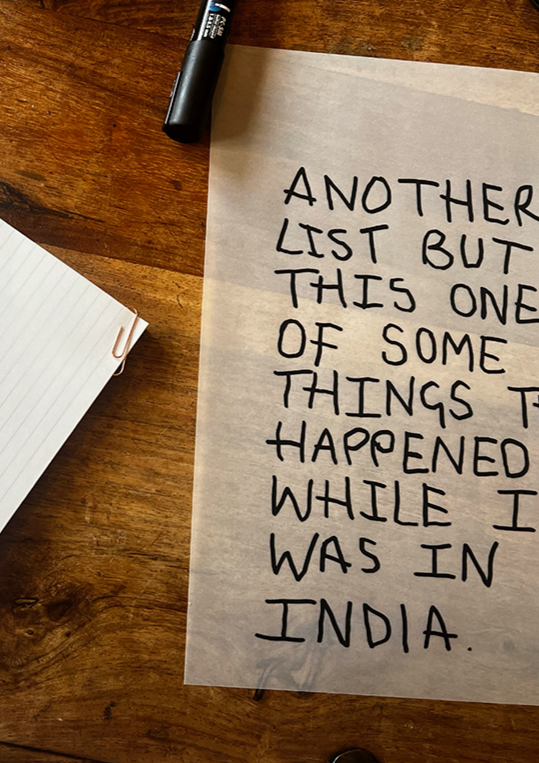 ANOTHER
LIST BUT
THIS ONE
OF SOME
THINGS
HAPPENED
WHILE I
WAS IN
INDIA.